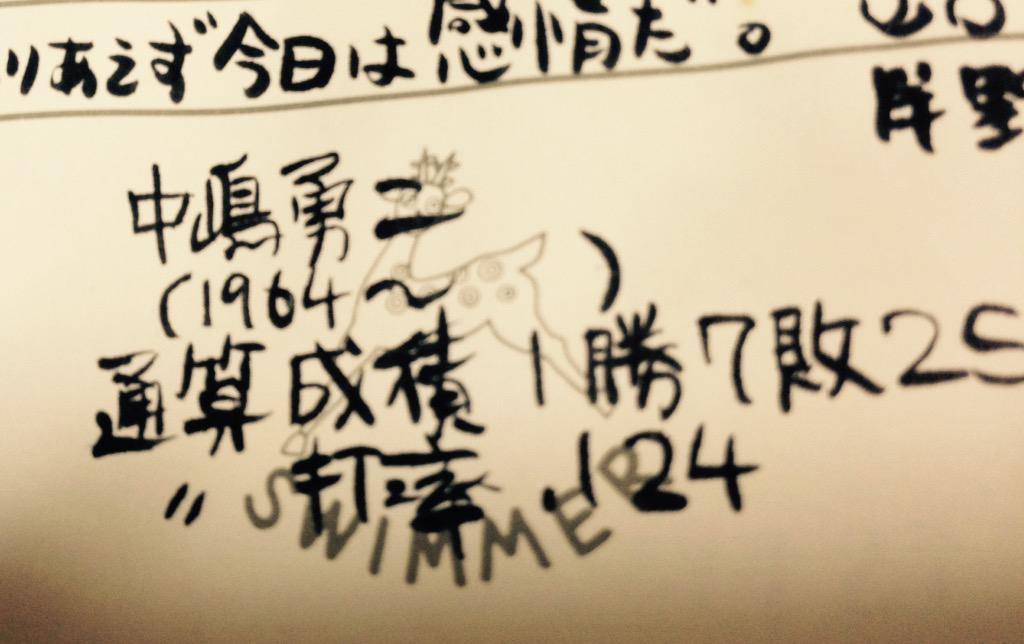 りあえず今日は感情だ。
中嶋勇二
(1964〜 )
通算成積 1勝7敗2S
〃 打率 .124
SWIMMER